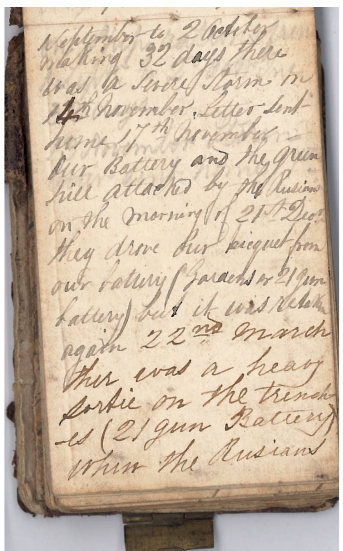 September to 2 October
making 32 days there
was a Severe Storm on
14th november. Letter sent
home 17th november
Our Battery and the Green
hill attacked by the Rusians
on the morning of 21st Decr
they drove our picquet from
our battery (Gordons or 21 gun
battery) but it was retaken
again 22nd march
ther was a heavy
sortie on the trench
-es (21 gun Battery)
when the Rusians